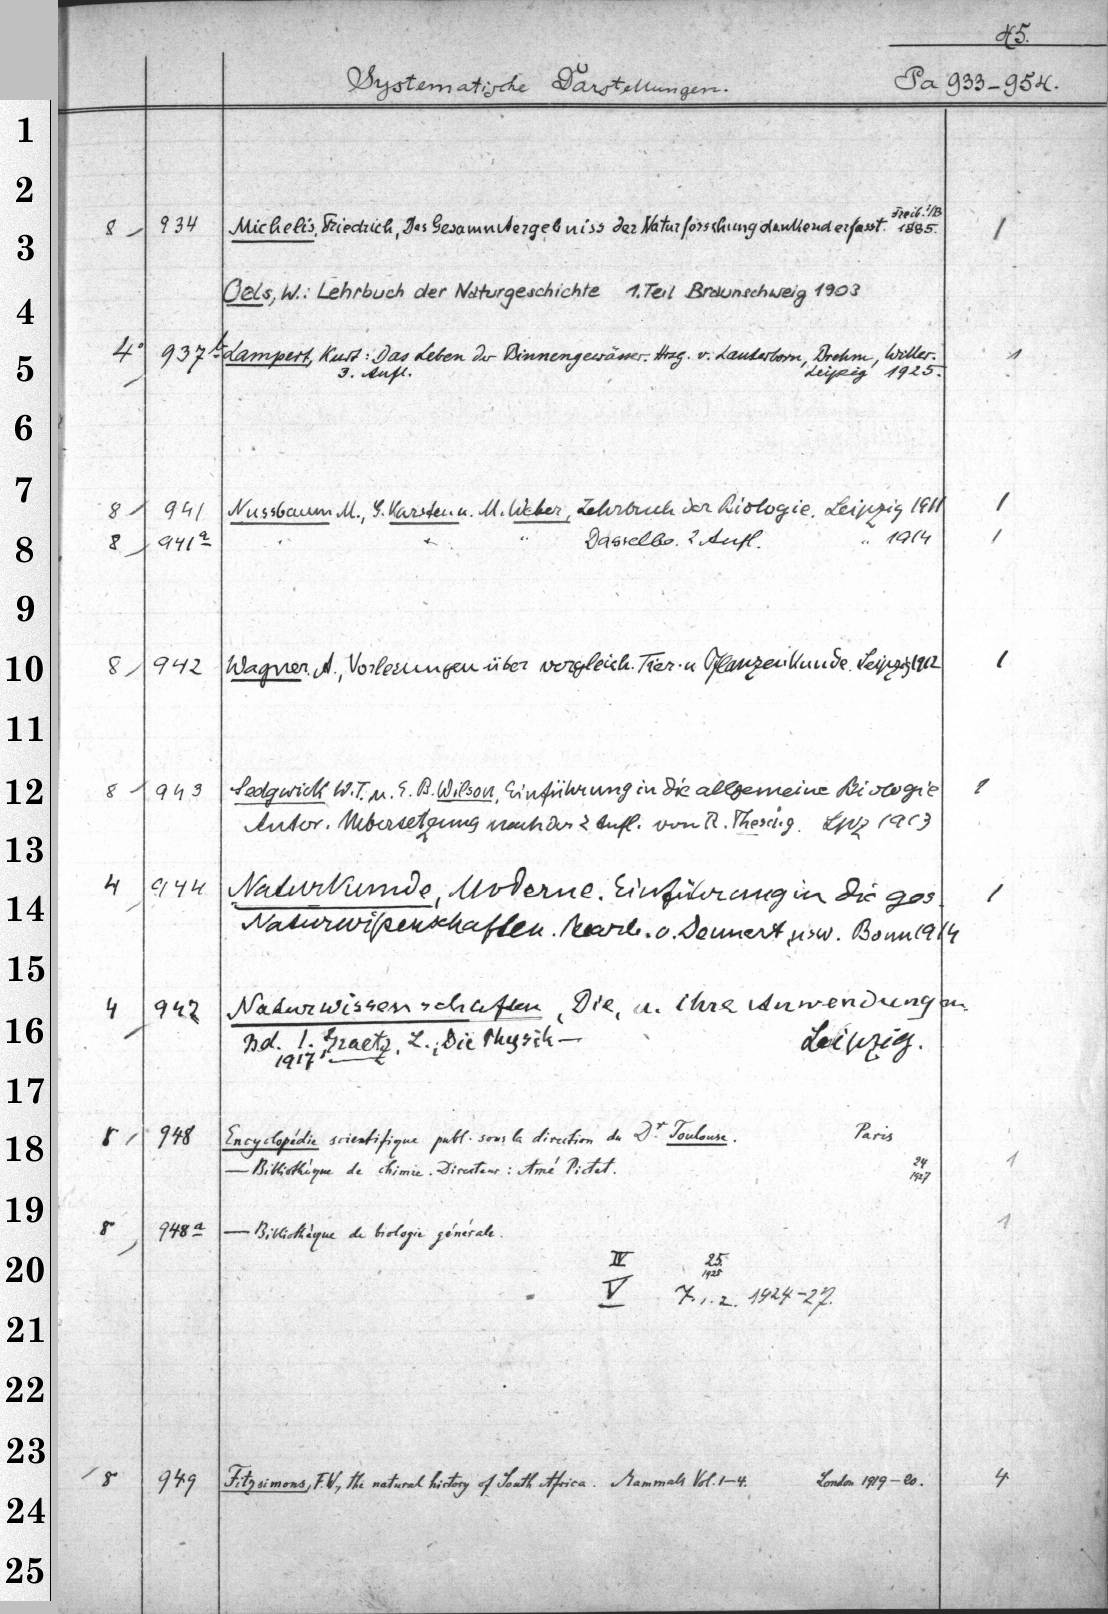 45.
Systematische Darstellungen. Pa 933-954.
1
2
8 934 Michelis, Friedrich, Das Gesammtergebniss der Naturforschung denkend erfasst. Freib. i/B 1885. 1
3
Oels, W.: Lehrbuch der Naturgeschichte 1. Teil Braunschweig 1903
4
4° 937b Lampert, Kurt: Das Leben der Binnengewässer. Hrsg. v. Lauterborn, Brehm, Willer. 1
5
3. Aufl. Leipzig 1925.
6
7
8 941 Nussbaum M., G. Karsten u. M. Weber, Lehrbuch der Biologie. Leipzig 1911 1
8
8 941a " " " Dasselbe. 2 Aufl. " 1914 1
9
10
8 942 Wagner, A., Vorlesungen über vergleich. Tier- u Pflanzenkunde. Leipzig 1912 1
11
12
8 943 Sedgwick W.T. u. E. B. Wilson, Einführung in die allgemeine Biologie 1
Autor. Uebersetzung nach der 2 Aufl. von R. Thesing. Lpz 1913
13
4 944 Naturkunde, Moderne. Einführung in die ges. 1
14
Naturwissenschaften. Bearb. v. Dennert usw. Bonn 1914
15
4 947 Naturwissenschaften, Die, u. ihre Anwendungen
16
Bd. 1. Graetz, L.: Die Physik — Leipzig.
1917
17
8 948 Encyclopédie scientifique publ. sous la direction du Dr Toulouse. Paris
18
— Bibliothèque de chimie. Directeur: Amé Pictet. 24 1927 1
19
8 948a — Bibliothèque de biologie générale. 1
20
IV 25. 1925
V 7. 1. 2. 1924-27.
21
22
23
8 949 Fitzsimons, F.W., the natural history of South Africa. Mammals Vol. 1-4. London 1919-20. 4
24
25